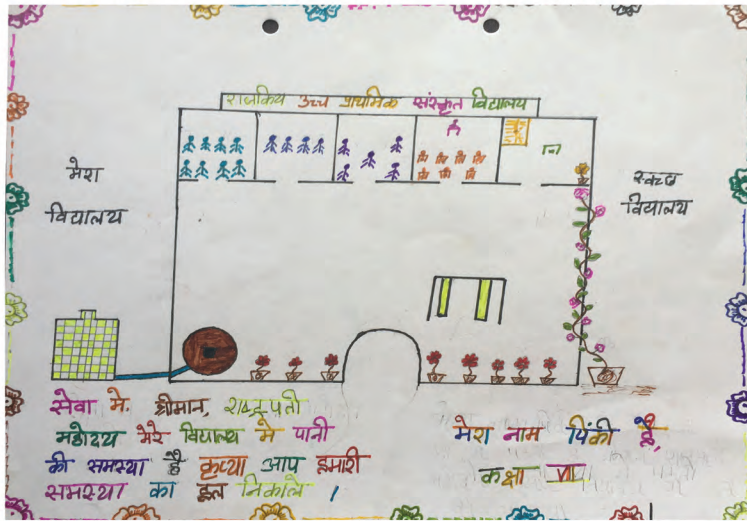 राजकिय उच्च प्राथमिक संस्कृत विद्यालय
मेरा
विद्यालय
स्वच्छ
विद्यालय
सेवा मे. श्रीमान, राष्ट्रपती
महोदय मेरे विद्यालय मे पानी
की समस्या है कृप्या आप हमारी
समस्या का हल निकाले ।
मेरा नाम पिंकी है,
कक्षा VII